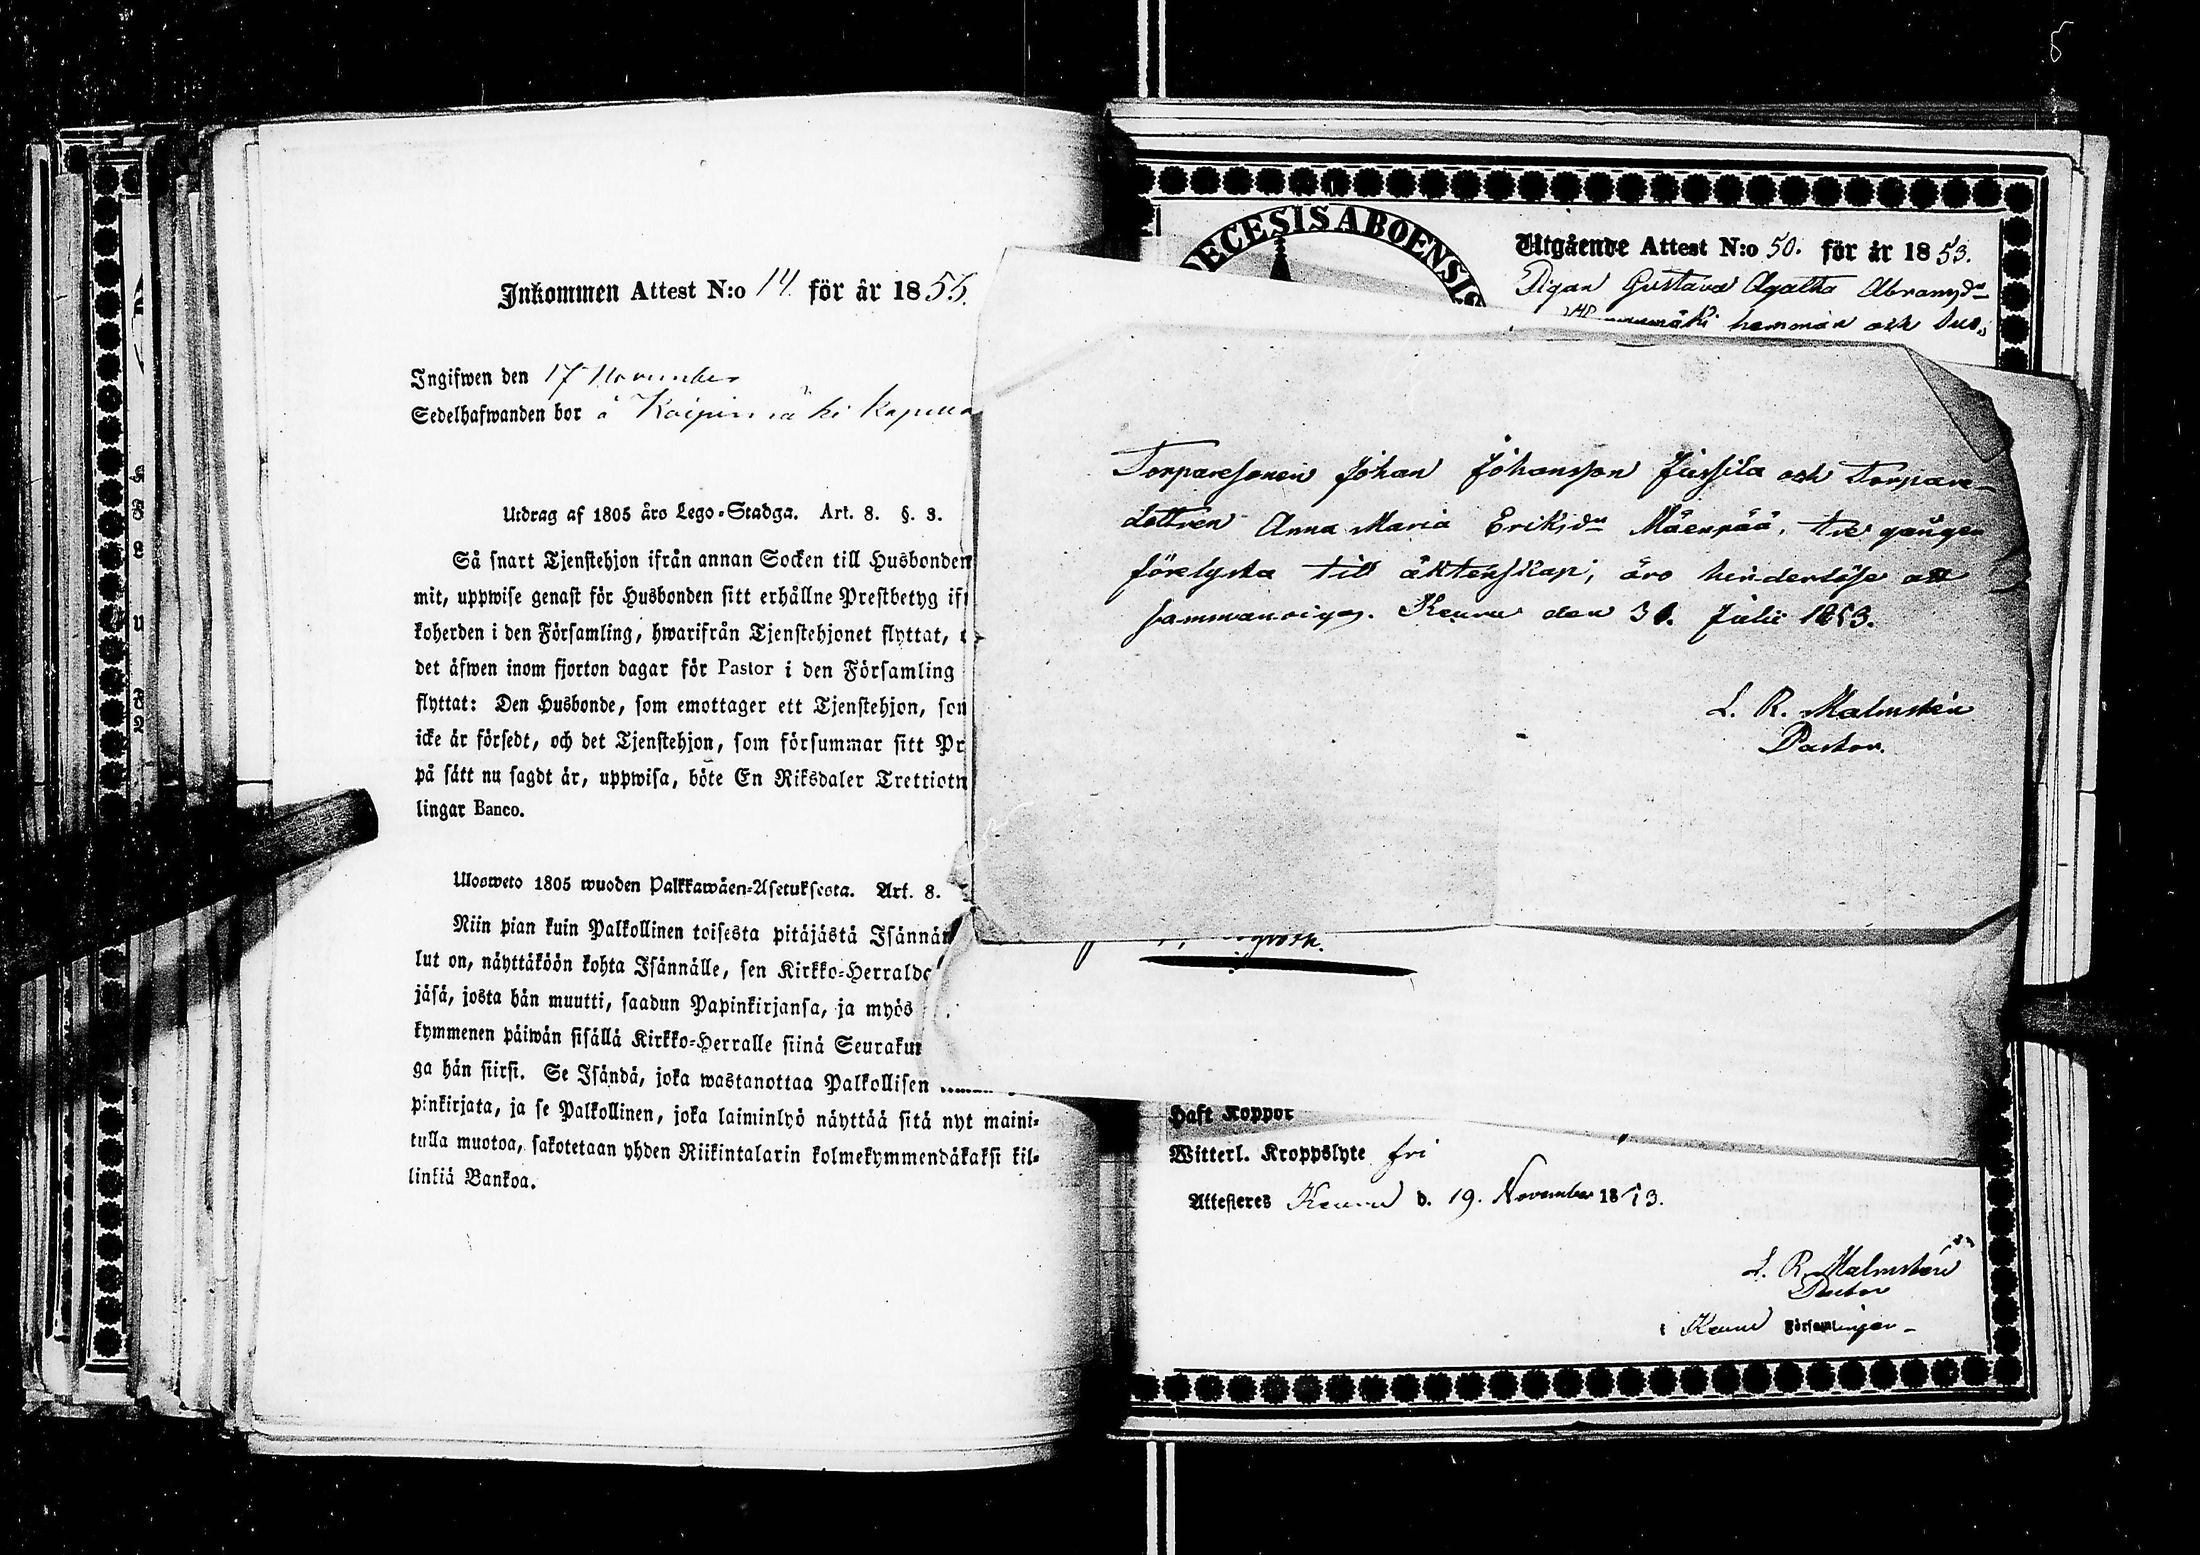 Inkommen Attest N:o 14. för år 1855.
Ingifwen den 17 November
Sedelhafwanden bor å
Utdrag af 1805 års Lego-Stadga. Art. 8. §. 3.
Så snart Tjenstehjon ifrån annan Socken till Husbonden
mit, uppwise genast för Husbonden sitt erhållne Prestbetyg if
koherden i den Församling, hwarifrån Tjenstehjonet flyttat,
det äfwen inom fjorton dagar för Pastor i den Församling
flyttat: Den Husbonde, som emottager ett Tjenstehjon, som
icke är försedt, och det Tjenstehjon, som försummar sitt Pr
på sätt nu sagdt är, uppwisa, böte En Riksdaler Trettiotw
lingar Banco.
Ulosweto 1805 wuoden Palkkawäen-Asetuksesta. Art. 8.
Niin pian kuin Palkollinen toisesta pitäjästä Isännän
lut on, näyttäköön kohta Isännälle, sen Kirkko-Herralda
jäsä, josta hän muutti, saadun Papinkirjansa, ja myös
kymmenen päiwän sisällä Kirkko-Herralle siinä Seurakun
ga hän siirsi. Se Isändä, joka wastanottaa Palkollisen
pinkirjata, ja se Palkollinen, joka laiminlyö näyttää sitä nyt maini-
tulla muotoa, sakotetaan yhden Riikintalarin kolmekymmendäkaksi kil-
linkiä Bankoa.
DECESIS ABOENSIS
Utgående Attest N:o 50. för år 1853.
Pigan Gustava Agatha Abramsdr
hemman och
Torparesonen Johan Johansson Jussila och Torpare-
dottren Anna Maria Eriksdr Mäenpää, tre gånger
förelysta till äktenskap, äro hinderlöse att
sammanvigas. Keuru den 31. Julii 1853.
L. R. Malmstén
Pastor.
Haft Koppor
Witterl. Kroppslyte fri
Attesteres Keuru d. 19. November 1853.
L. R. Malmstén
Pastor
i Keuru Församlingar